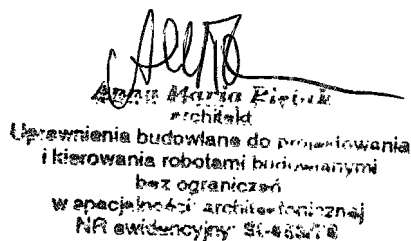 Anna Maria
architekt
Uprawnienia budowlane do projektowania
i kierowania robotami budowlanymi
bez ograniczeń
w specjalności architektonicznej
NR ewidencyjny